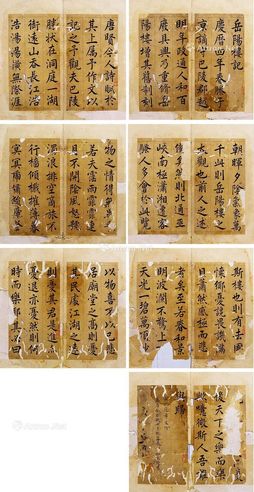 岳陽樓記
慶曆四年春滕子
京謫守巴陵郡越
明年政通人和百
廢具興乃重修岳
陽樓增其舊制刻
唐賢今人詩賦於
其上屬予作文以
記之予觀夫巴陵
勝狀在洞庭一湖
銜遠山吞長江浩
浩湯湯橫無際涯
朝暉夕陰氣象萬
千此則岳陽樓之
大觀也前人之述
備矣然則北通巫
峽南極瀟湘遷客
騷人多會於此覽
物之情得無異
若夫霪雨霏霏連
月不開陰風怒號
濁浪排空商旅不
行檣傾楫摧薄暮
冥冥虎嘯猿啼登
斯樓也則有去國
懷鄉憂讒畏譏滿
目蕭然感極而悲
者矣至若春和景
明波瀾不驚上下
天光一碧萬頃
以物喜不以己悲
居廟堂之高則憂
其民處江湖之遠
則憂其君是進亦
憂退亦憂然則何
時而樂耶其必曰
後天下之樂而樂
歟噫微斯人吾誰
與歸